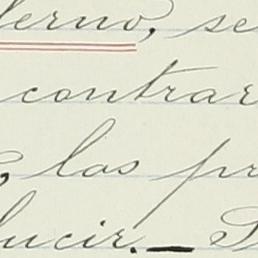 terno, se
contrar
, las pr
lucir. —